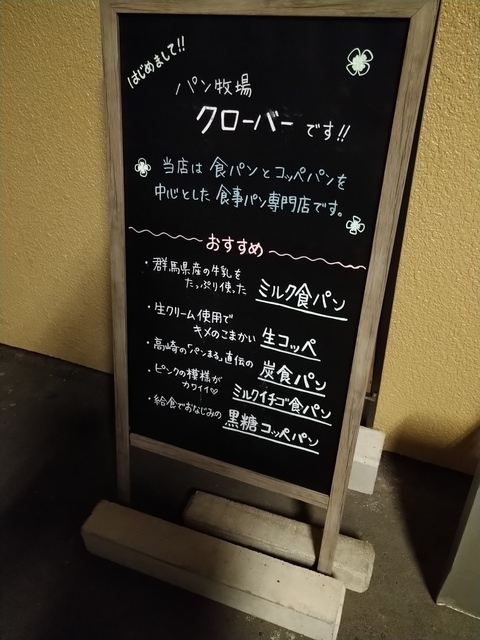 はじめまして!!
パン牧場
クローバーです!!
当店は食パンとコッペパンを
中心とした食事パン専門店です。
おすすめ
・群馬県産の牛乳を
たっぷり使った ミルク食パン
・生クリーム使用で
キメのこまかい 生コッペ
・高崎の「パンまる」直伝の 炭食パン
・ピンクの模様が
カワイイ♡ ミルクイチゴ食パン
・給食でおなじみの 黒糖コッペパン